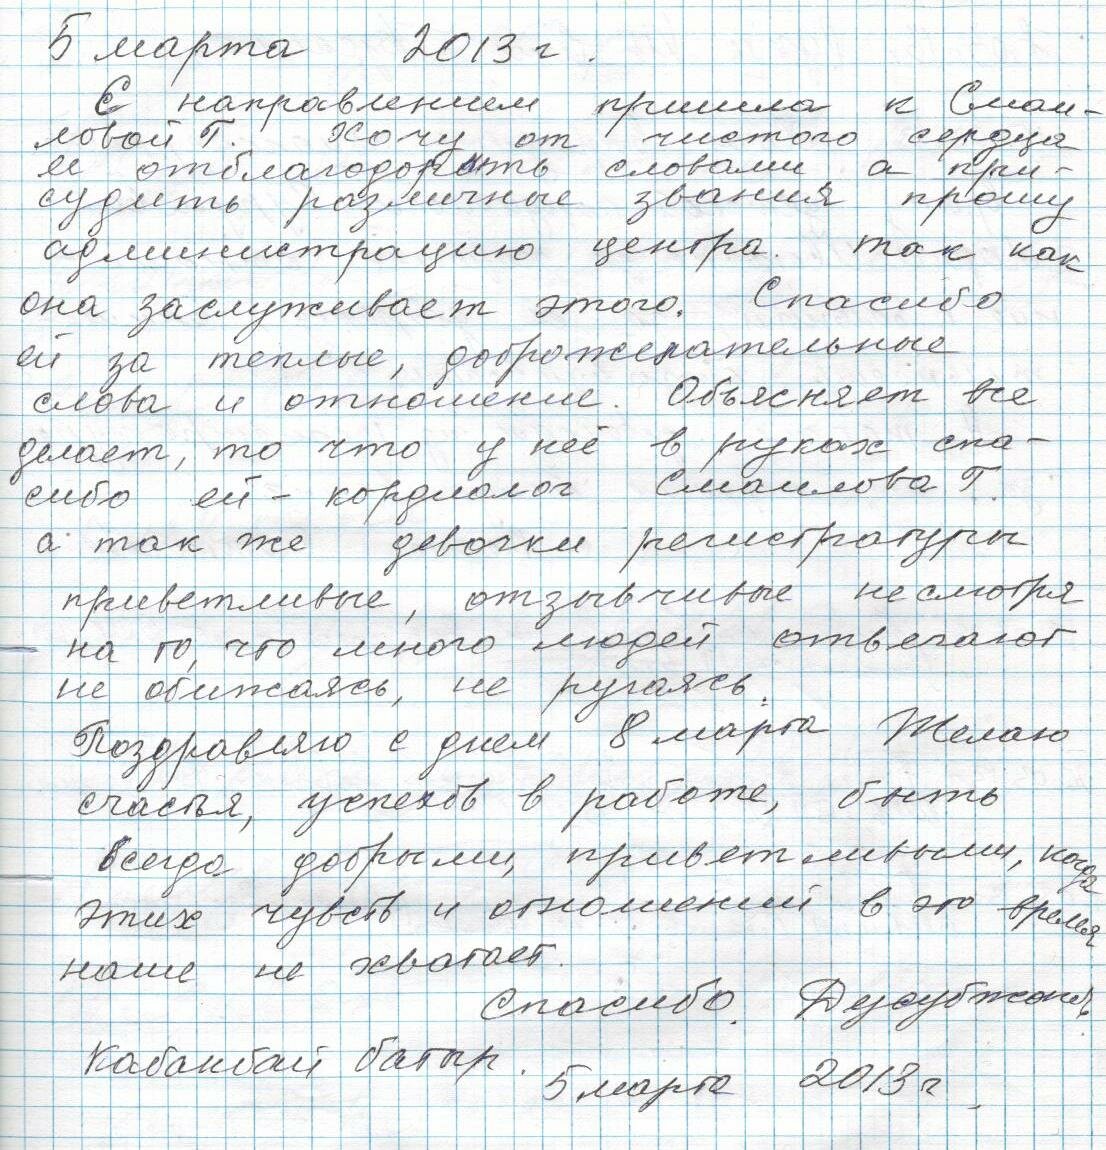 5 марта 2013 г.
С направлением пришла к Смаи-
ловой Г. Хочу от чистого сердца
ее отблагодорить словами а при-
судить различные звания прошу
администрацию центра. так как
она заслуживает этого. Спасибо
ей за теплые, доброжелательные
слова и отношение. Объясняет все
делает, то что у неё в руках спа-
сибо ей - кордиолог Смаилова Г.
а так же девочки регистратуры
приветливые, отзывчивые несмотря
на то, что много людей отвечают
не обижаясь, не ругаясь.
Поздравляю с днем 8 марта Желаю
счастья, успехов в работе, быть
всегда добрыми, приветливыми, когда
этих чувств и отношений в это время
наше не хватает.
Спасибо.
Кабанбай батыр.
5 марта 2013 г.